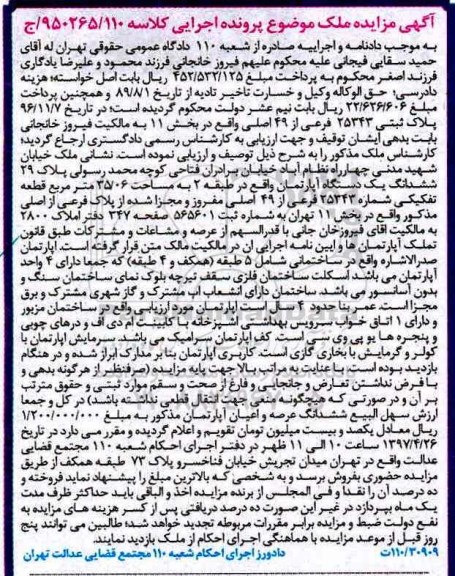 آگهی مزایده ملک موضوع پرونده اجرایی کلاسه ۹۵۰۲۶۵/۱۱۰/ج
به موجب دادنامه و اجراییه صادره از شعبه ۱۱۰ دادگاه عمومی حقوقی تهران له آقای
حمید سقایی فیجانی علیه محکوم علیهم فیروز خانجانی فرزند محمود و علیرضا یادگاری
فرزند اصغر محکوم به پرداخت مبلغ ۴۵۲/۵۳۲/۱۲۵ ریال بابت اصل خواسته؛ هزینه
دادرسی؛ حق الوکاله وکیل و خسارت تاخیر تادیه از تاریخ ۸۹/۸/۱ و همچنین پرداخت
مبلغ ۲۲/۶۲۶/۶۰۶ ریال بابت نیم عشر دولت محکوم گردیده است؛ در تاریخ ۹۶/۱۱/۷
پلاک ثبتی ۲۵۳۴۳ فرعی از ۴۹ اصلی واقع در بخش ۱۱ به مالکیت فیروز خانجانی
بابت بدهی ایشان توقیف و جهت ارزیابی به کارشناس رسمی دادگستری ارجاع گردید؛
کارشناس ملک مذکور را به شرح ذیل توصیف و ارزیابی نموده است. نشانی ملک خیابان
شهید مدنی چهارراه نظام آباد خیابان برادران فتاحی کوچه محمد رسولی پلاک ۲۹
ششدانگ یک دستگاه آپارتمان واقع در طبقه ۲ به مساحت ۳۵/۰۶ متر مربع قطعه
تفکیکی شماره ۲۵۳۴۳ فرعی از ۴۹ اصلی مفروز و مجزا شده از پلاک فرعی از اصلی
مذکور واقع در بخش ۱۱ تهران به شماره ثبت ۵۶۵۶۰۱ صفحه ۳۴۷ دفتر املاک ۲۸۰۰
به مالکیت آقای فیروزخان جانی با قدرالسهم از عرصه و مشاعات و مشترکات طبق قانون
تملک آپارتمان ها و آیین نامه اجرایی آن در مالکیت مالک متن قرار گرفته است. آپارتمان
صدرالاشاره واقع در ساختمانی شامل ۵ طبقه (همکف و ۴ طبقه) که جمعا دارای ۴ واحد
آپارتمان می باشد. اسکلت ساختمان فلزی سقف تیرچه بلوک نمای ساختمان سنگ و
بدون آسانسور می باشد. ساختمان دارای انشعاب آب مشترک و گاز شهری مشترک و برق
مجزا است. عمر بنا حدود ۴ سال است. آپارتمان مورد ارزیابی واقع در ساختمان مزبور
و دارای ۱ اتاق خواب سرویس بهداشتی آشپزخانه با کابینت ام دی اف و درهای چوبی
و پنجره ها یو پی وی سی است. کف آپارتمان سرامیک می باشد. سرمایش آپارتمان با
کولر و گرمایش با بخاری گازی است. کاربری آپارتمان بنا بر مدارک ابراز شده و در هنگام
بازدید بوده است. با عنایت به مراتب بالا جهت پایه مزایده (صرفنظر از هرگونه بدهی و
با فرض نداشتن تعارض و جانجایی و فارغ از صحت و سقم موارد ثبتی و حقوق مترتب
بر آن و در صورتی که هیچگونه منعی جهت انتقال قطعی نداشته باشد) در کل و جمعا
ارزش سهل البیع ششدانگ عرصه و اعیان آپارتمان مذکور به مبلغ ۱/۲۰۰/۰۰۰/۰۰۰
ریال معادل یکصد و بیست میلیون تومان تقویم و اعلام گردیده و مقرر می دارد در تاریخ
۱۳۹۷/۴/۲۶ ساعت ۱۰ الی ۱۱ ظهر در دفتر اجرای احکام شعبه ۱۱۰ مجتمع قضایی
عدالت واقع در تهران میدان تجریش خیابان فناخسرو پلاک ۷۳ طبقه همکف از طریق
مزایده حضوری بفروش برسد و به شخصی که بالاترین مبلغ را پیشنهاد نماید فروخته و
ده درصد آن را نقدا و فی المجلس از برنده مزایده اخذ و الباقی باید حداکثر ظرف مدت
یک ماه بپردازد در غیر این صورت ده درصد دریافتی پس از کسر هزینه های مزایده به
نفع دولت ضبط و مزایده برابر مقررات مربوطه تجدید خواهد شد؛ طالبین می توانند پنج
روز قبل از موعد مزایده با هماهنگی اجرای احکام از ملک بازدید نمایند.
۱۱۰/۳۰۹۰۹ت دادورز اجرای احکام شعبه ۱۱۰ مجتمع قضایی عدالت تهران